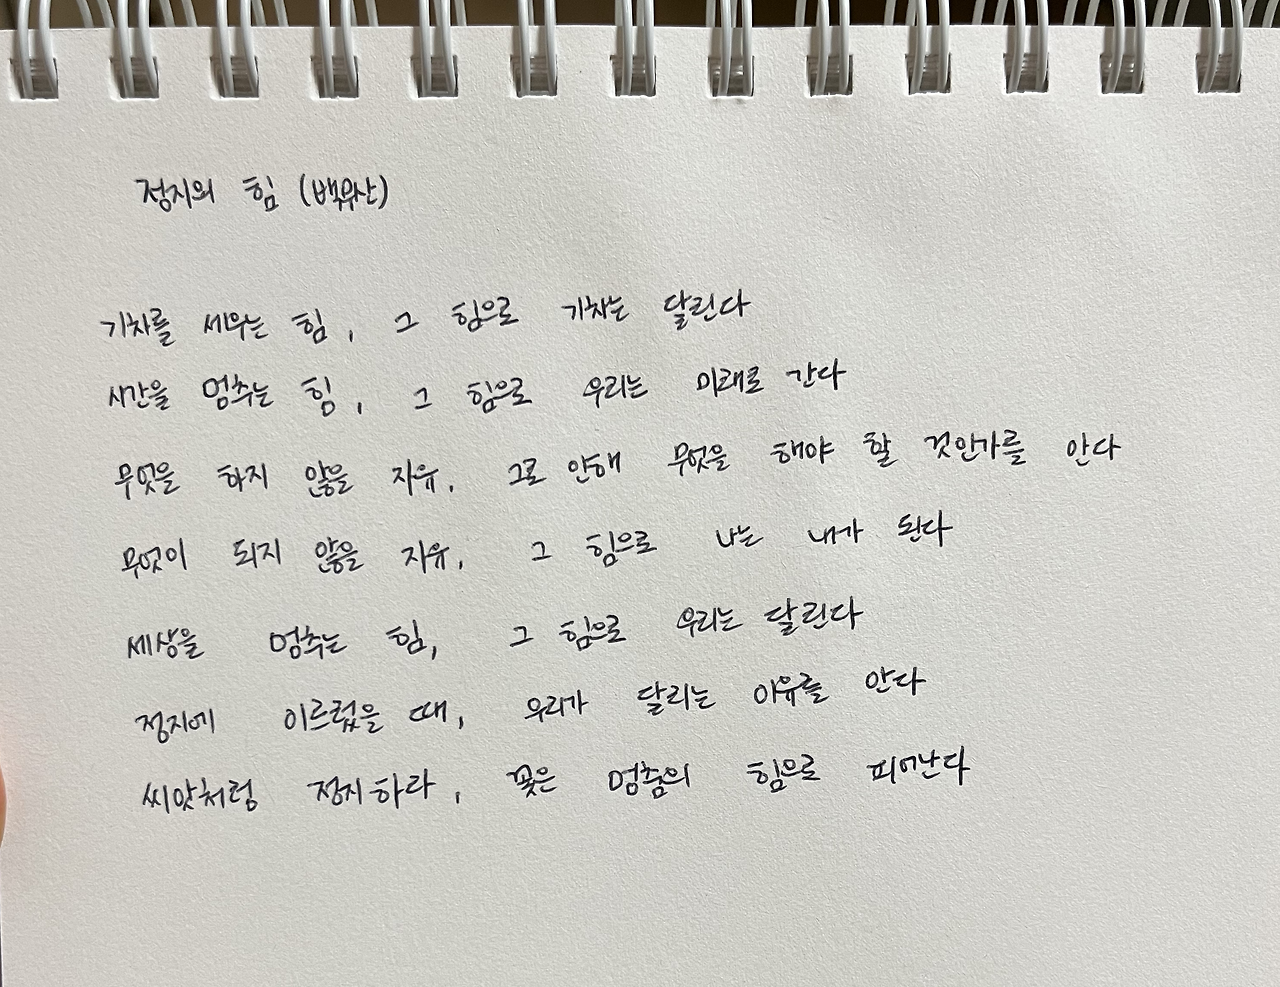 정지의 힘 (백무산)
기차를 세우는 힘, 그 힘으로 기차는 달린다
시간을 멈추는 힘, 그 힘으로 우리는 미래로 간다
무엇을 하지 않을 자유, 그로 인해 무엇을 해야 할 것인가를 안다
무엇이 되지 않을 자유, 그 힘으로 나는 내가 된다
세상을 멈추는 힘, 그 힘으로 우리는 달린다
정지에 이르렀을 때, 우리가 달리는 이유를 안다
씨앗처럼 정지하라, 꽃은 멈춤의 힘으로 피어난다